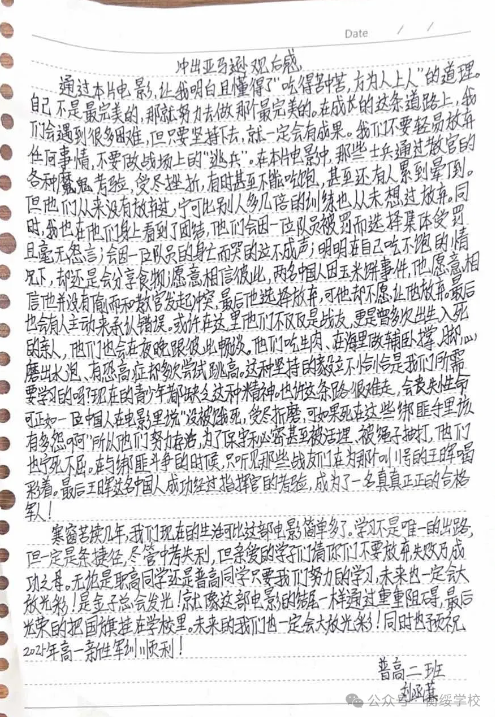 Date / /
冲出亚马逊观后感
通过本片电影,让我明白且懂得了"吃得苦中苦,方为人上人"的道理。
自己不是最完美的,那就努力去做那个最完美的。在成长的这条道路上,我
们会遇到很多困难,但只要坚持下去,就一定会有成果。我们不要轻易放弃
任何事情,不要做战场上的"逃兵"。在本片电影中,那些士兵通过教官的
各种魔鬼考验,受尽挫折,有时甚至不能吃饱,甚至还有人累到晕倒。
但他们从来没有放弃过,宁可比别人多几倍的训练也从未想过放弃。同
时,我也在他们身上看到了团结,他们会因一位队员被罚而选择集体受罚
且毫无怨言;会因一位队员的身亡而哭的泣不成声;明明在自己吃不饱的情
况下,却还是会分享食物;愿意相信彼此,两名中国人因玉米饼事件,他愿意相
信他并没有偷而和教官发起冲突,最后他选择放弃,可他却不愿让他放弃。最后
也会有人主动来承认错误。或许在这里他们不仅仅是战友,更是曾多次出生入死
的亲人,他们也会在夜晚跟彼此畅谈。他们吃生肉,在海里做辅卧撑,脚
磨出水泡,有恐高症却多次尝试跳高。这种坚持的毅力不恰恰是我们所需
要学习的吗?现在的青少年都缺乏这种精神。也许这条路很难走,会丧失性命
可正如一位中国人在电影里说"没被饿死,受尽折磨,可如果死在这些绑匪手里该
有多怨啊"所以他们努力存活,为了保守秘密甚至被活埋,被绳子抽打,他们
也宁死不屈。在与绑匪斗争的时候,只听见那些战友们在为那个叫的王晖喝
彩着。最后王晖这名中国人成功经过指挥官的考验,成为了一名真真正正的合格
军人!
寒窗苦读几年,我们现在的生活可比这部电影简单多了。学习不是唯一的出路,
但一定是条捷径,尽管中考失利,但亲爱的学子们请你们不要放弃,失败乃成
功之母。无论是职高同学还是普高同学只要我们努力的学习,未来也一定会大
放光彩!是金子总会发光!就像这部电影的结尾一样通过重重阻碍,最后
光荣的把国旗挂在学校里。未来的我们也一定会大放光彩!同时也预祝
2021年高一新生军训顺利!
普高二班
公众号·绥学校